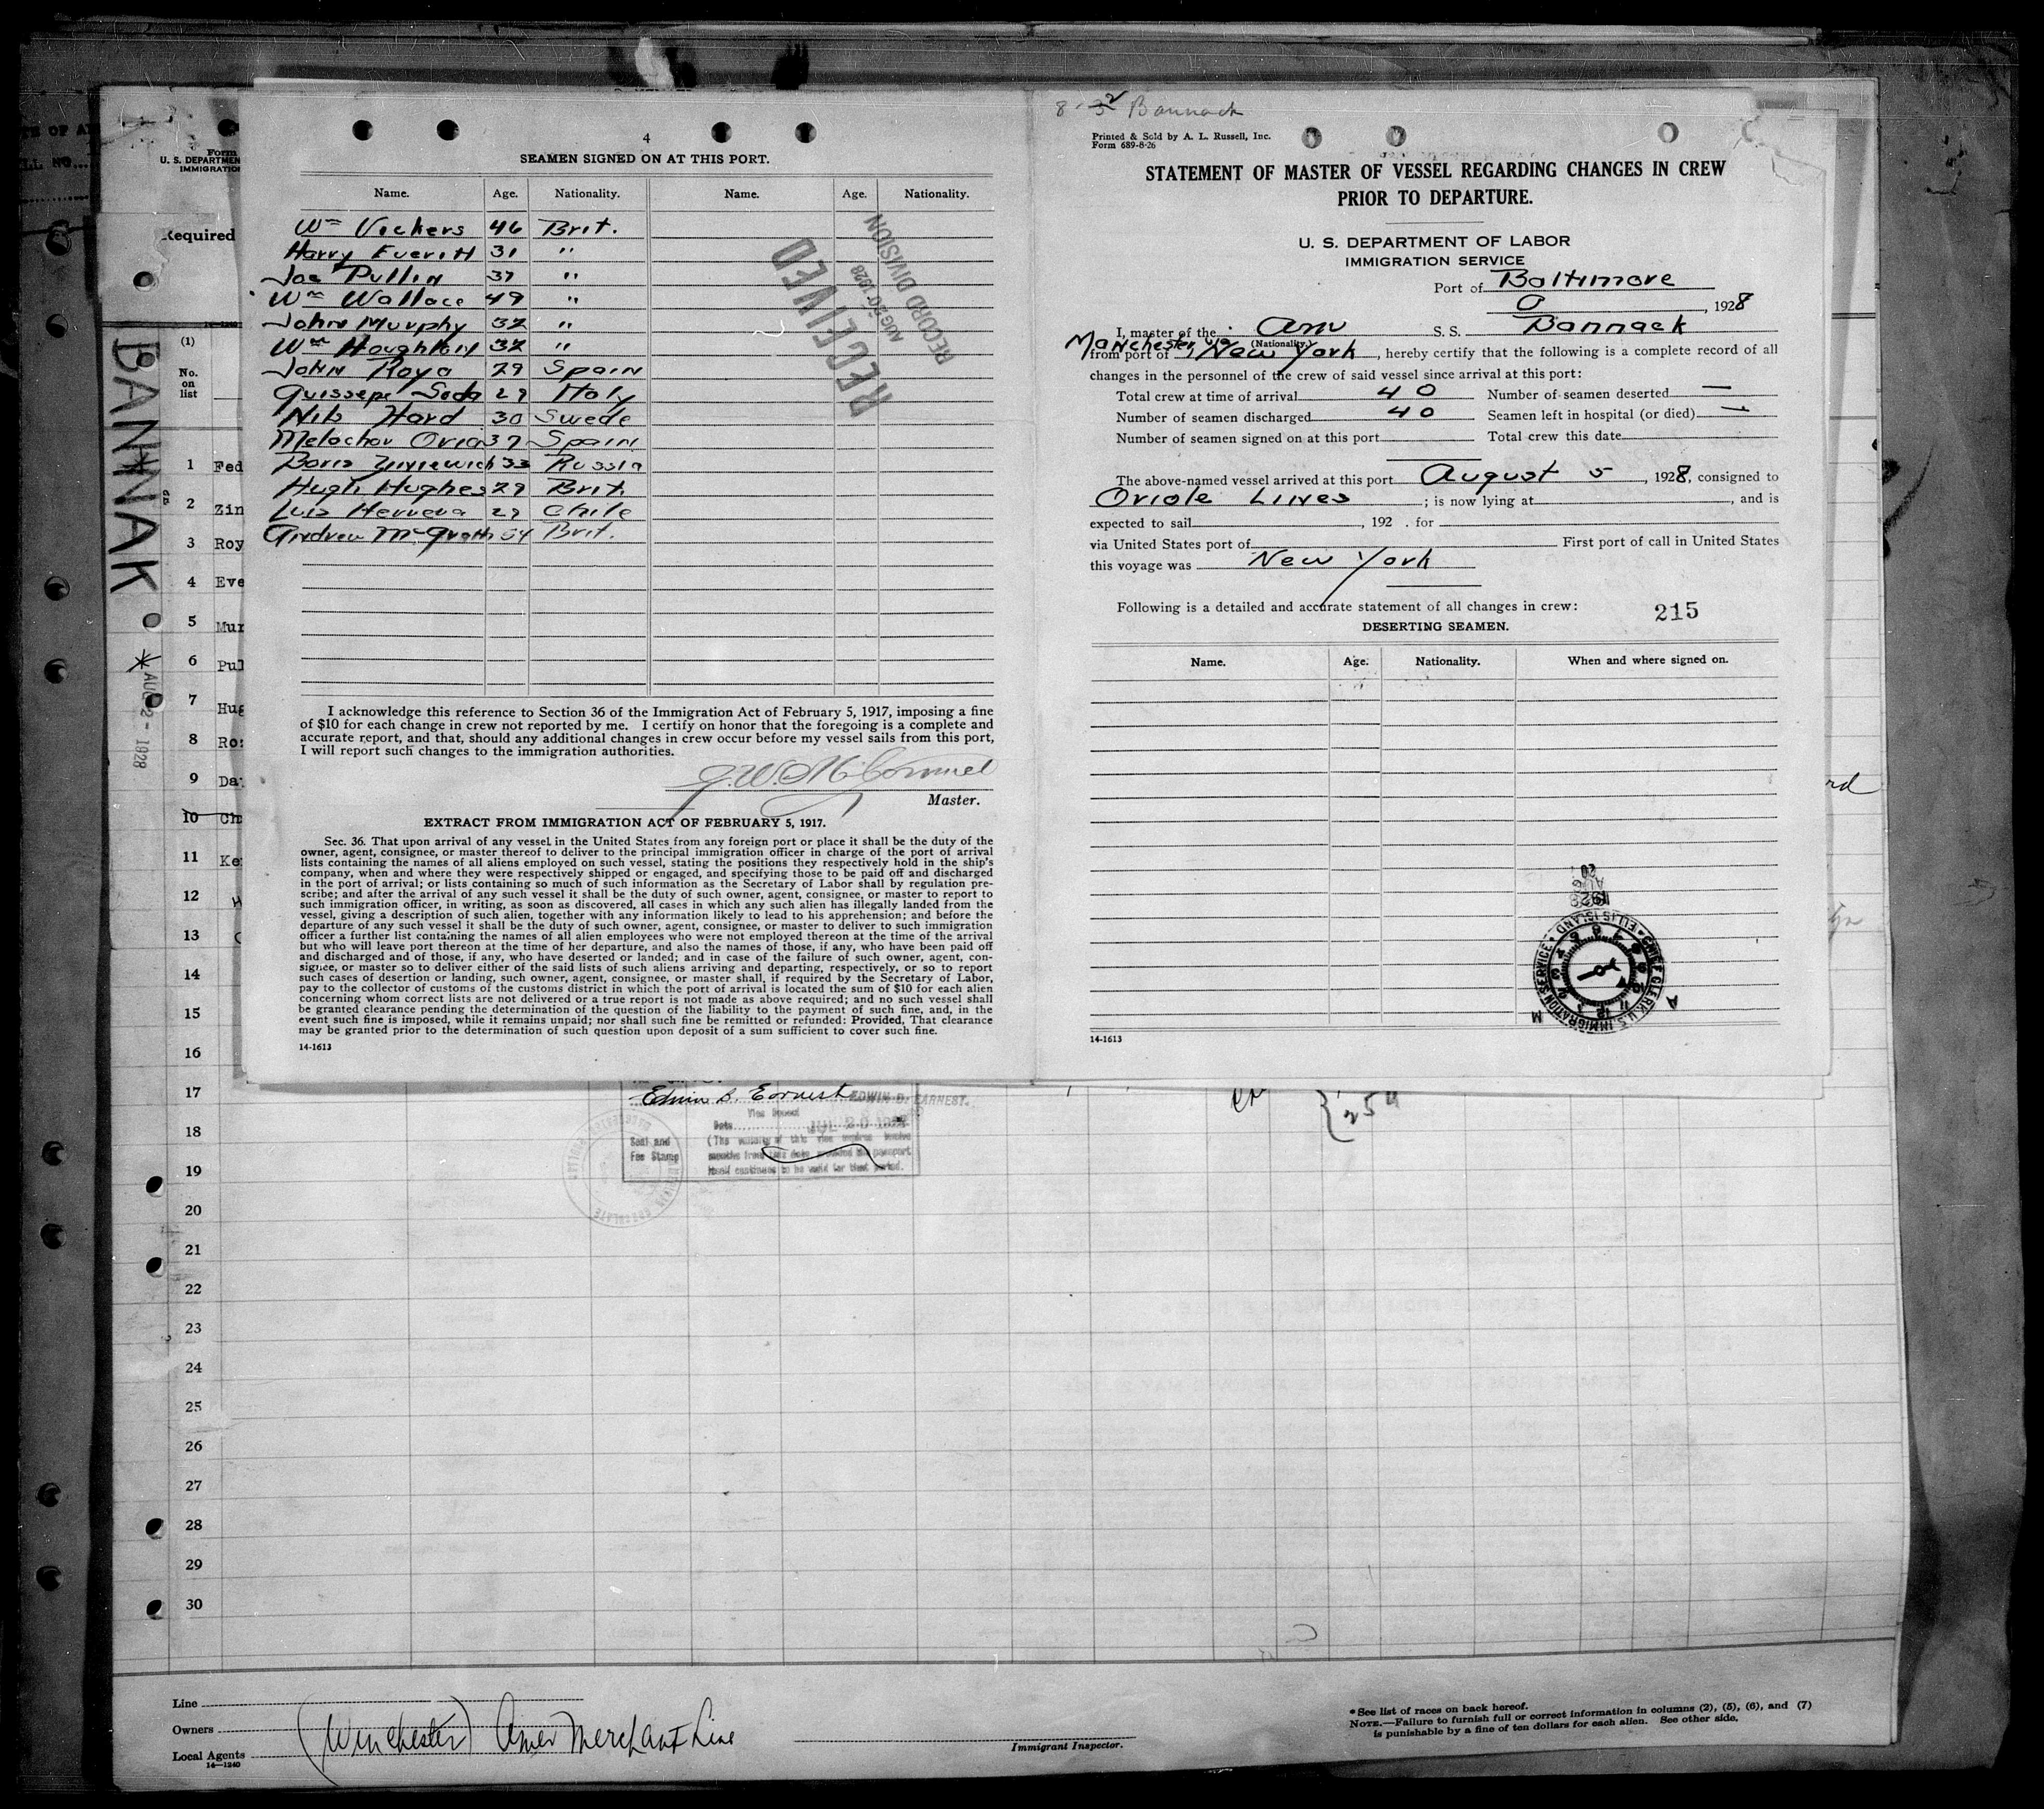 4
SEAMEN SIGNED ON AT THIS PORT.
Name. Age. Nationality. Name. Age. Nationality.
Wm Vickers 46 Brit.
Harry Everitt 31 "
Joe Pullin 37 "
Wm Wallace 49 "
John Murphy 32 "
Wm Houghton 32 "
John Roya 29 Spain
Guissepe Soda 29 Italy
Nils Hard 30 Swede
Melochor Oria 37 Spain
Boris 33 Russia
Hugh Hughes 29 Brit.
Luis Herrera 29 Chile
Andrew McGrath 54 Brit.
RECEIVED
AUG 20 1928
RECORD DIVISION
I acknowledge this reference to Section 36 of the Immigration Act of February 5, 1917, imposing a fine
of $10 for each change in crew not reported by me. I certify on honor that the foregoing is a complete and
accurate report, and that, should any additional changes in crew occur before my vessel sails from this port,
I will report such changes to the immigration authorities.
Master.
EXTRACT FROM IMMIGRATION ACT OF FEBRUARY 5, 1917.
Sec. 36. That upon arrival of any vessel in the United States from any foreign port or place it shall be the duty of the
owner, agent, consignee, or master thereof to deliver to the principal immigration officer in charge of the port of arrival
lists containing the names of all aliens employed on such vessel, stating the positions they respectively hold in the ship's
company, when and where they were respectively shipped or engaged, and specifying those to be paid off and discharged
in the port of arrival; or lists containing so much of such information as the Secretary of Labor shall by regulation pre-
scribe; and after the arrival of any such vessel it shall be the duty of such owner, agent, consignee, or master to report to
such immigration officer, in writing, as soon as discovered, all cases in which any such alien has illegally landed from the
vessel, giving a description of such alien, together with any information likely to lead to his apprehension; and before the
departure of any such vessel it shall be the duty of such owner, agent, consignee, or master to deliver to such immigration
officer a further list containing the names of all alien employees who were not employed thereon at the time of the arrival
but who will leave port thereon at the time of her departure, and also the names of those, if any, who have been paid off
and discharged and of those, if any, who have deserted or landed; and in case of the failure of such owner, agent, con-
signee, or master so to deliver either of the said lists of such aliens arriving and departing, respectively, or so to report
such cases of desertion or landing, such owner, agent, consignee, or master shall, if required by the Secretary of Labor,
pay to the collector of customs of the customs district in which the port of arrival is located the sum of $10 for each alien
concerning whom correct lists are not delivered or a true report is not made as above required; and no such vessel shall
be granted clearance pending the determination of the question of the liability to the payment of such fine, and, in the
event such fine is imposed, while it remains unpaid; nor shall such fine be remitted or refunded: Provided, That clearance
may be granted prior to the determination of such question upon deposit of a sum sufficient to cover such fine.
14-1613
Bannack
Printed & Sold by A. L. Russell, Inc.
Form 689-8-26
STATEMENT OF MASTER OF VESSEL REGARDING CHANGES IN CREW
PRIOR TO DEPARTURE.
U. S. DEPARTMENT OF LABOR
IMMIGRATION SERVICE
Port of Baltimore
, 1928
I, master of the Am S. S. Bannack
(Nationality.)
Manchester via
from port of New York, hereby certify that the following is a complete record of all
changes in the personnel of the crew of said vessel since arrival at this port:
Total crew at time of arrival 40 Number of seamen deserted —
Number of seamen discharged 40 Seamen left in hospital (or died) —
Number of seamen signed on at this port Total crew this date
The above-named vessel arrived at this port August 5, 1928, consigned to
Oriole Lines; is now lying at , and is
expected to sail , 192 . for
via United States port of First port of call in United States
this voyage was New York
Following is a detailed and accurate statement of all changes in crew:
215
DESERTING SEAMEN.
Name. Age. Nationality. When and where signed on.
AUG 20
1928
CHIEF CLERK U.S. IMMIGRATION SERVICE • ELLIS ISLAND •
A M
14-1613
Form
U. S. DEPARTMEN
IMMIGRATIO
Required
BANNAK
AUG 2 - 1928
(1)
No.
on
list
1 Fed
2 Zin
3 Roy
4 Eve
5 Mur
6 Pul
7 Hug
8 Ros
9 Da
10 Ch
11 Ke
12
13
14
15
16
17
18
19
20
21
22
23
24
25
26
27
28
29
30
Edwin D. Earnest EDWIN D. EARNEST.
Visa Issued
Date JUL 20 1928
Seal and
Fee Stamp
(The validity of this visa expires twelve
months from this date provided the passport
itself continues to be valid for that period.
Line
Owners
Local Agents
14-1240
(Winchester) Amer Merchant Line
Immigrant Inspector.
* See list of races on back hereof.
NOTE.—Failure to furnish full or correct information in columns (2), (5), (6), and (7)
is punishable by a fine of ten dollars for each alien. See other side.